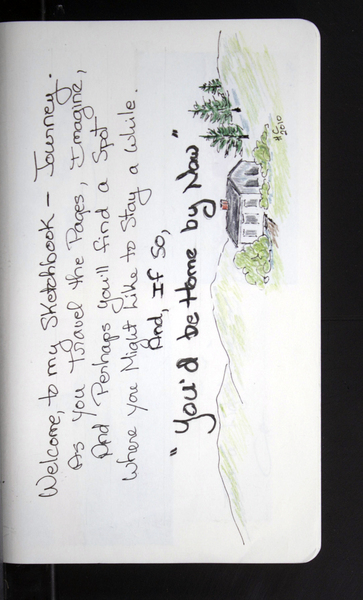 Welcome, to my Sketchbook - Journey.
As you Travel the Pages, Imagine,
And Perhaps you'll find a Spot
Where you Might Like to Stay a While.
And, If So,
"You'd be Home by Now"
HC
2010